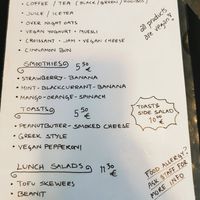 • COFFEE / TEA (BLACK/GREEN/ROOIBOS)
• JUICE / ICETEA
• OVER NIGHT OATS
• VEGAN YOGHURT + MUESLI
• CROISSANT - JAM + VEGAN CHEESE
• CINNAMON BUN
All products are vegan!
SMOOTHIES 5.50 €
• STRAWBERRY - BANANA
• MINT - BLACKCURRANT - BANANA
• MANGO - ORANGE - SPINACH
TOASTS 5.50 €
• PEANUTBUTTER - SMOKED CHEESE
• GREEK STYLE
• VEGAN PEPPERONI
TOAST & SIDE SALAD 10.00 €
LUNCH SALADS 11.50 €
• TOFU SKEWERS
• BEANIT
FOOD ALLERGY?
ASK STAFF FOR
MORE INFO